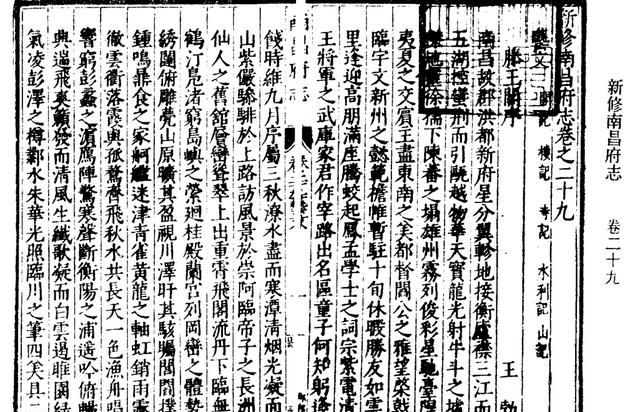 新修南昌府志 卷二十九
新修南昌府志卷之二十九
藝文 樓記 寺記 水利記 山記
滕王閣序 王勃
南昌故郡洪都新府星分翼軫地接衡廬襟三江而
五湖控蠻荆而引甌越物華天寶龍光射牛斗之墟
傑地靈徐孺下陳蕃之榻雄州霧列俊彩星馳臺隍
夷夏之交賓主盡東南之美都督閻公之雅望棨戟
臨宇文新州之懿範襜帷暫駐十旬休暇勝友如雲
里逢迎高朋滿座騰蛟起鳳孟學士之詞宗紫電清
王將軍之武庫家君作宰路出名區童子何知躬逢
南昌府志
餞時維九月序屬三秋潦水盡而寒潭清烟光凝而
山紫儼驂騑於上路訪風景於崇阿臨帝子之長洲
仙人之舊館層巒聳翠上出重霄飛閣流丹下臨無
鶴汀鳧渚窮島嶼之縈迴桂殿蘭宫列岡巒之體勢
綉闥俯雕甍山原曠其盈視川澤盱其駭矚閭閻撲
鍾鳴鼎食之家舸艦迷津青雀黄龍之軸虹銷雨霽
徹雲衢落霞與孤鶩齊飛秋水共長天一色漁舟唱
響窮彭蠡之濱鴈陣驚寒聲斷衡陽之浦遥吟俯暢
興遄飛爽籟發而清風生纖歌凝而白雲遏睢園緑
氣凌彭澤之樽鄴水朱華光照臨川之筆四美具二